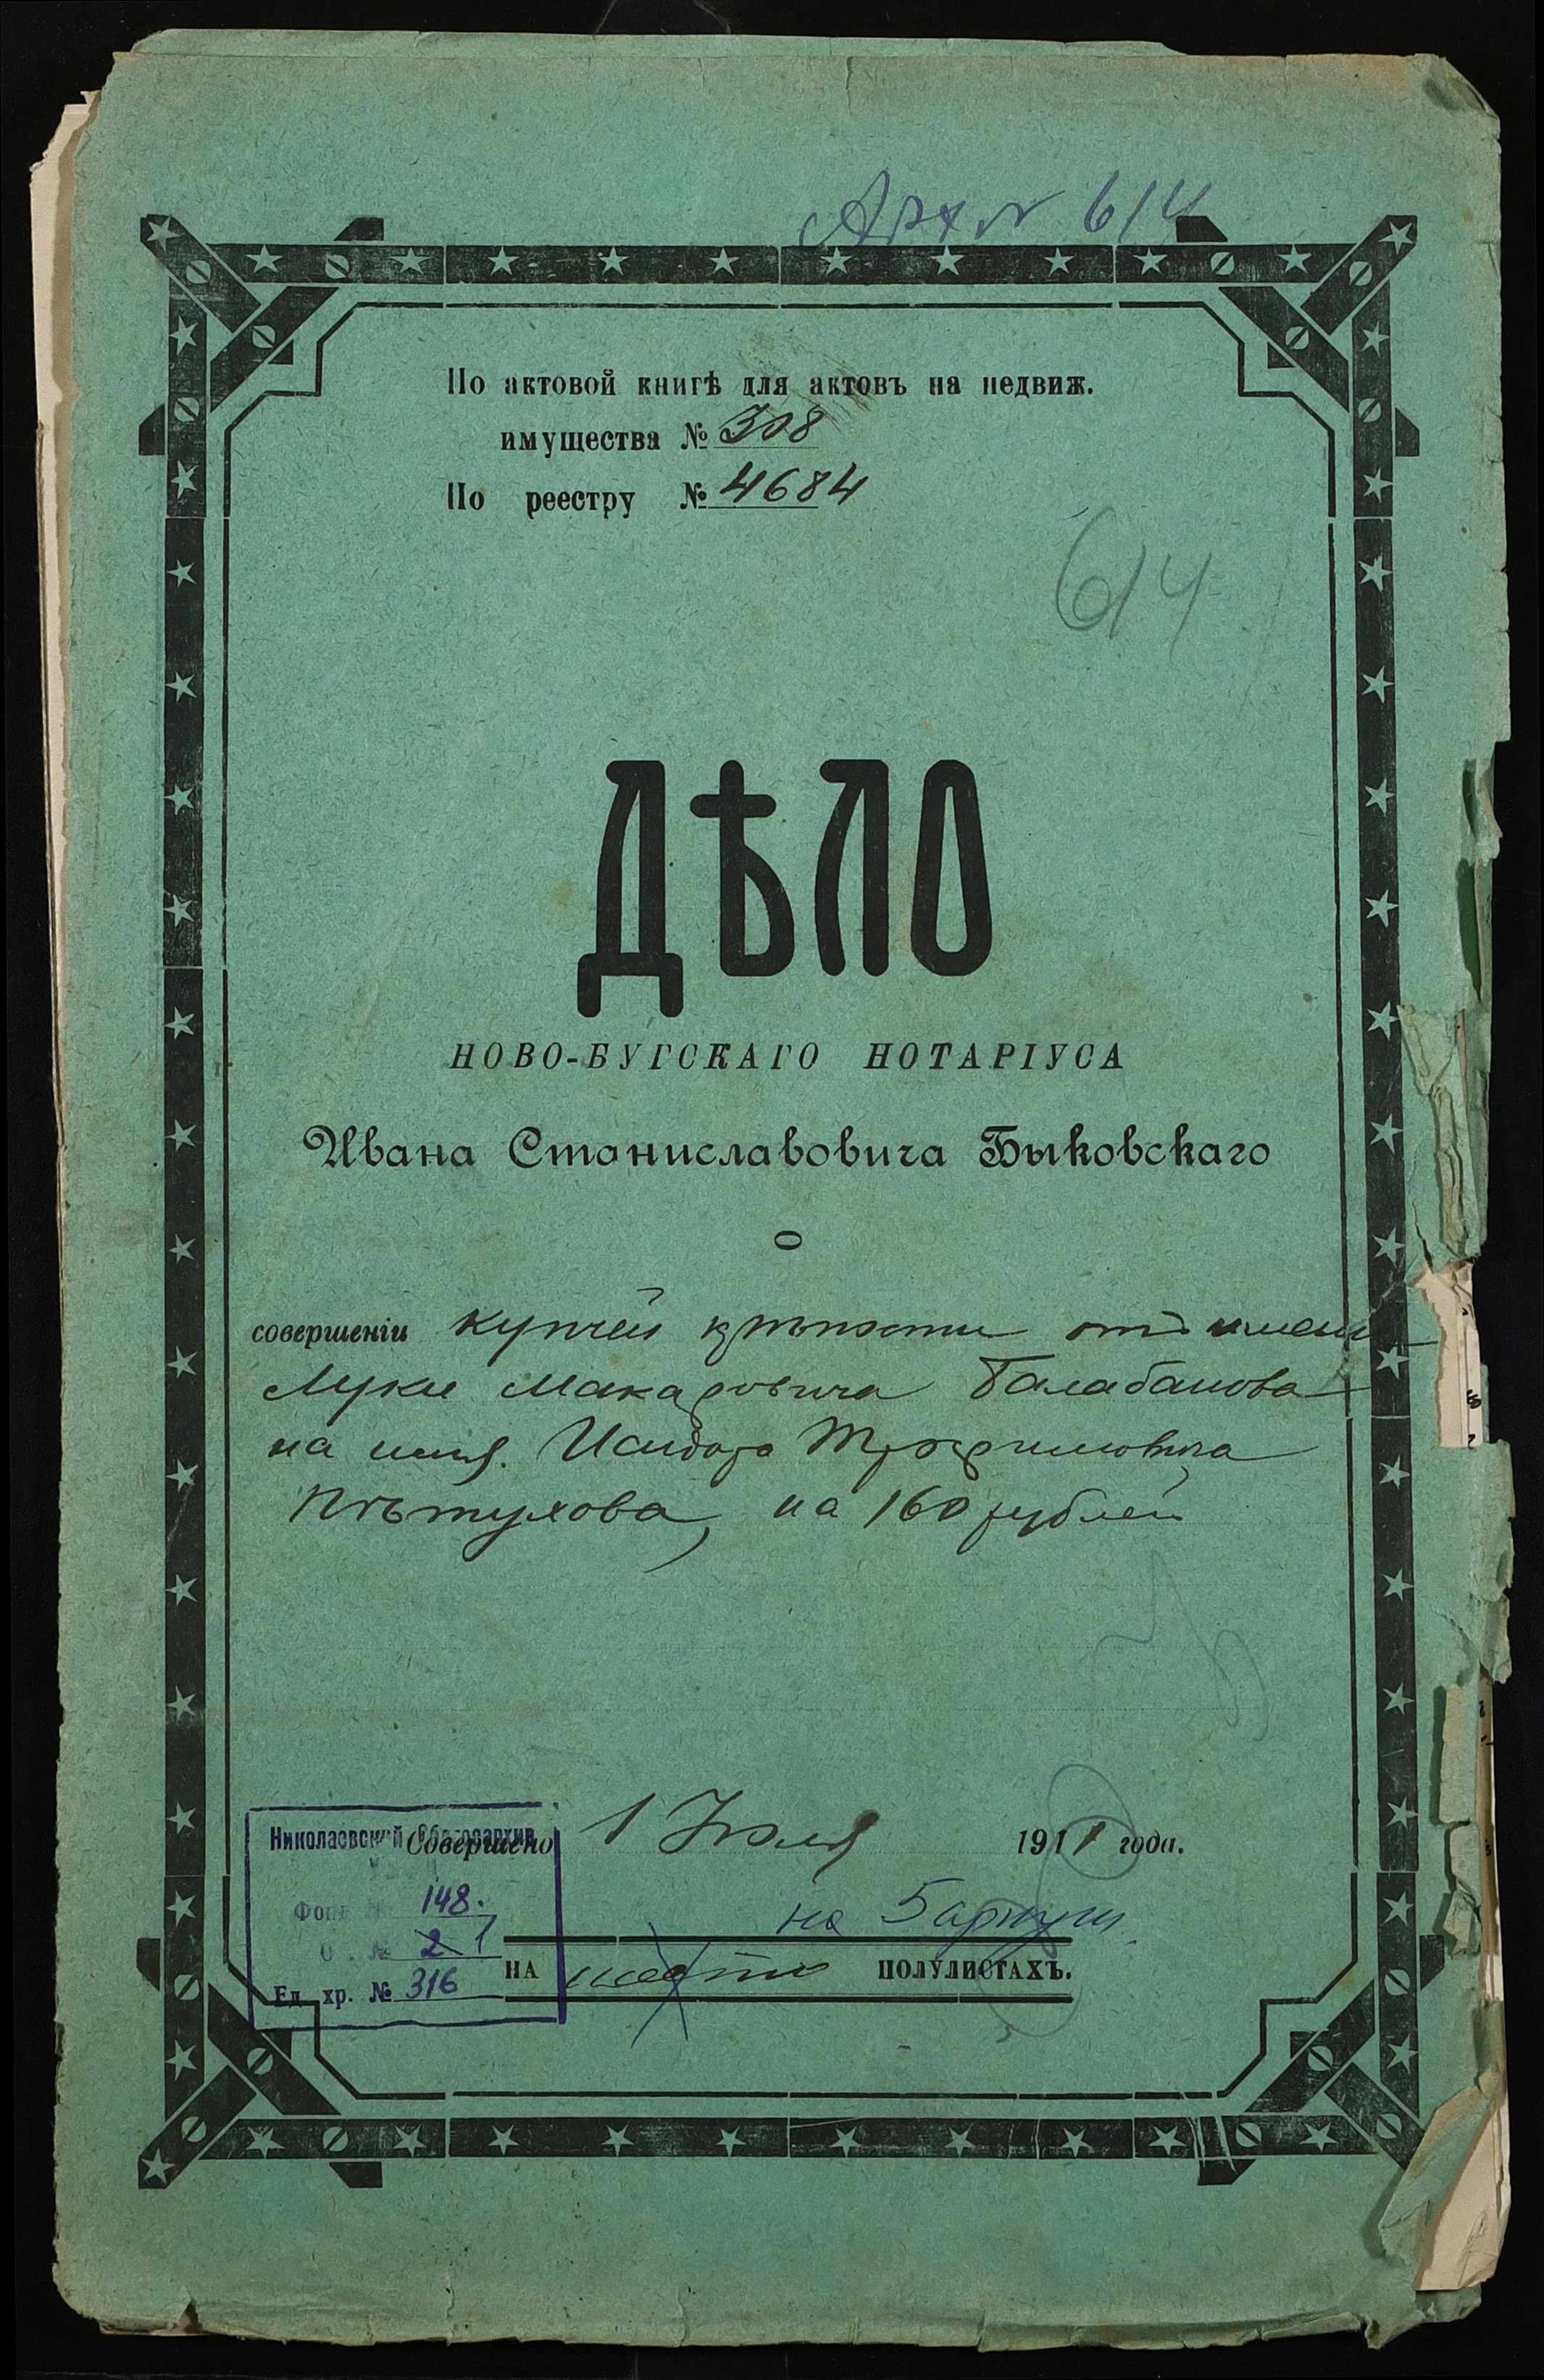 Арх № 614
По актовой книгѣ для актовъ на недвиж.
имущества № 308
По реестру № 4684
614
ДѢЛО
НОВО-БУГСКАГО НОТАРІУСА
Ивана Станиславовича Быковскаго
о
совершеніи купчей крѣпости отъ имени
Луки Макаровича Балабанова
на имя Исидора Трофимовича
Пѣтухова, на 160 рублей
Совершено 1 Іюля 1911 года.
на 5 
НА шести ПОЛУЛИСТАХЪ.
Николаевский Облгосархив
Фонд № 148.
О . № 2 1
Ед. хр. № 316